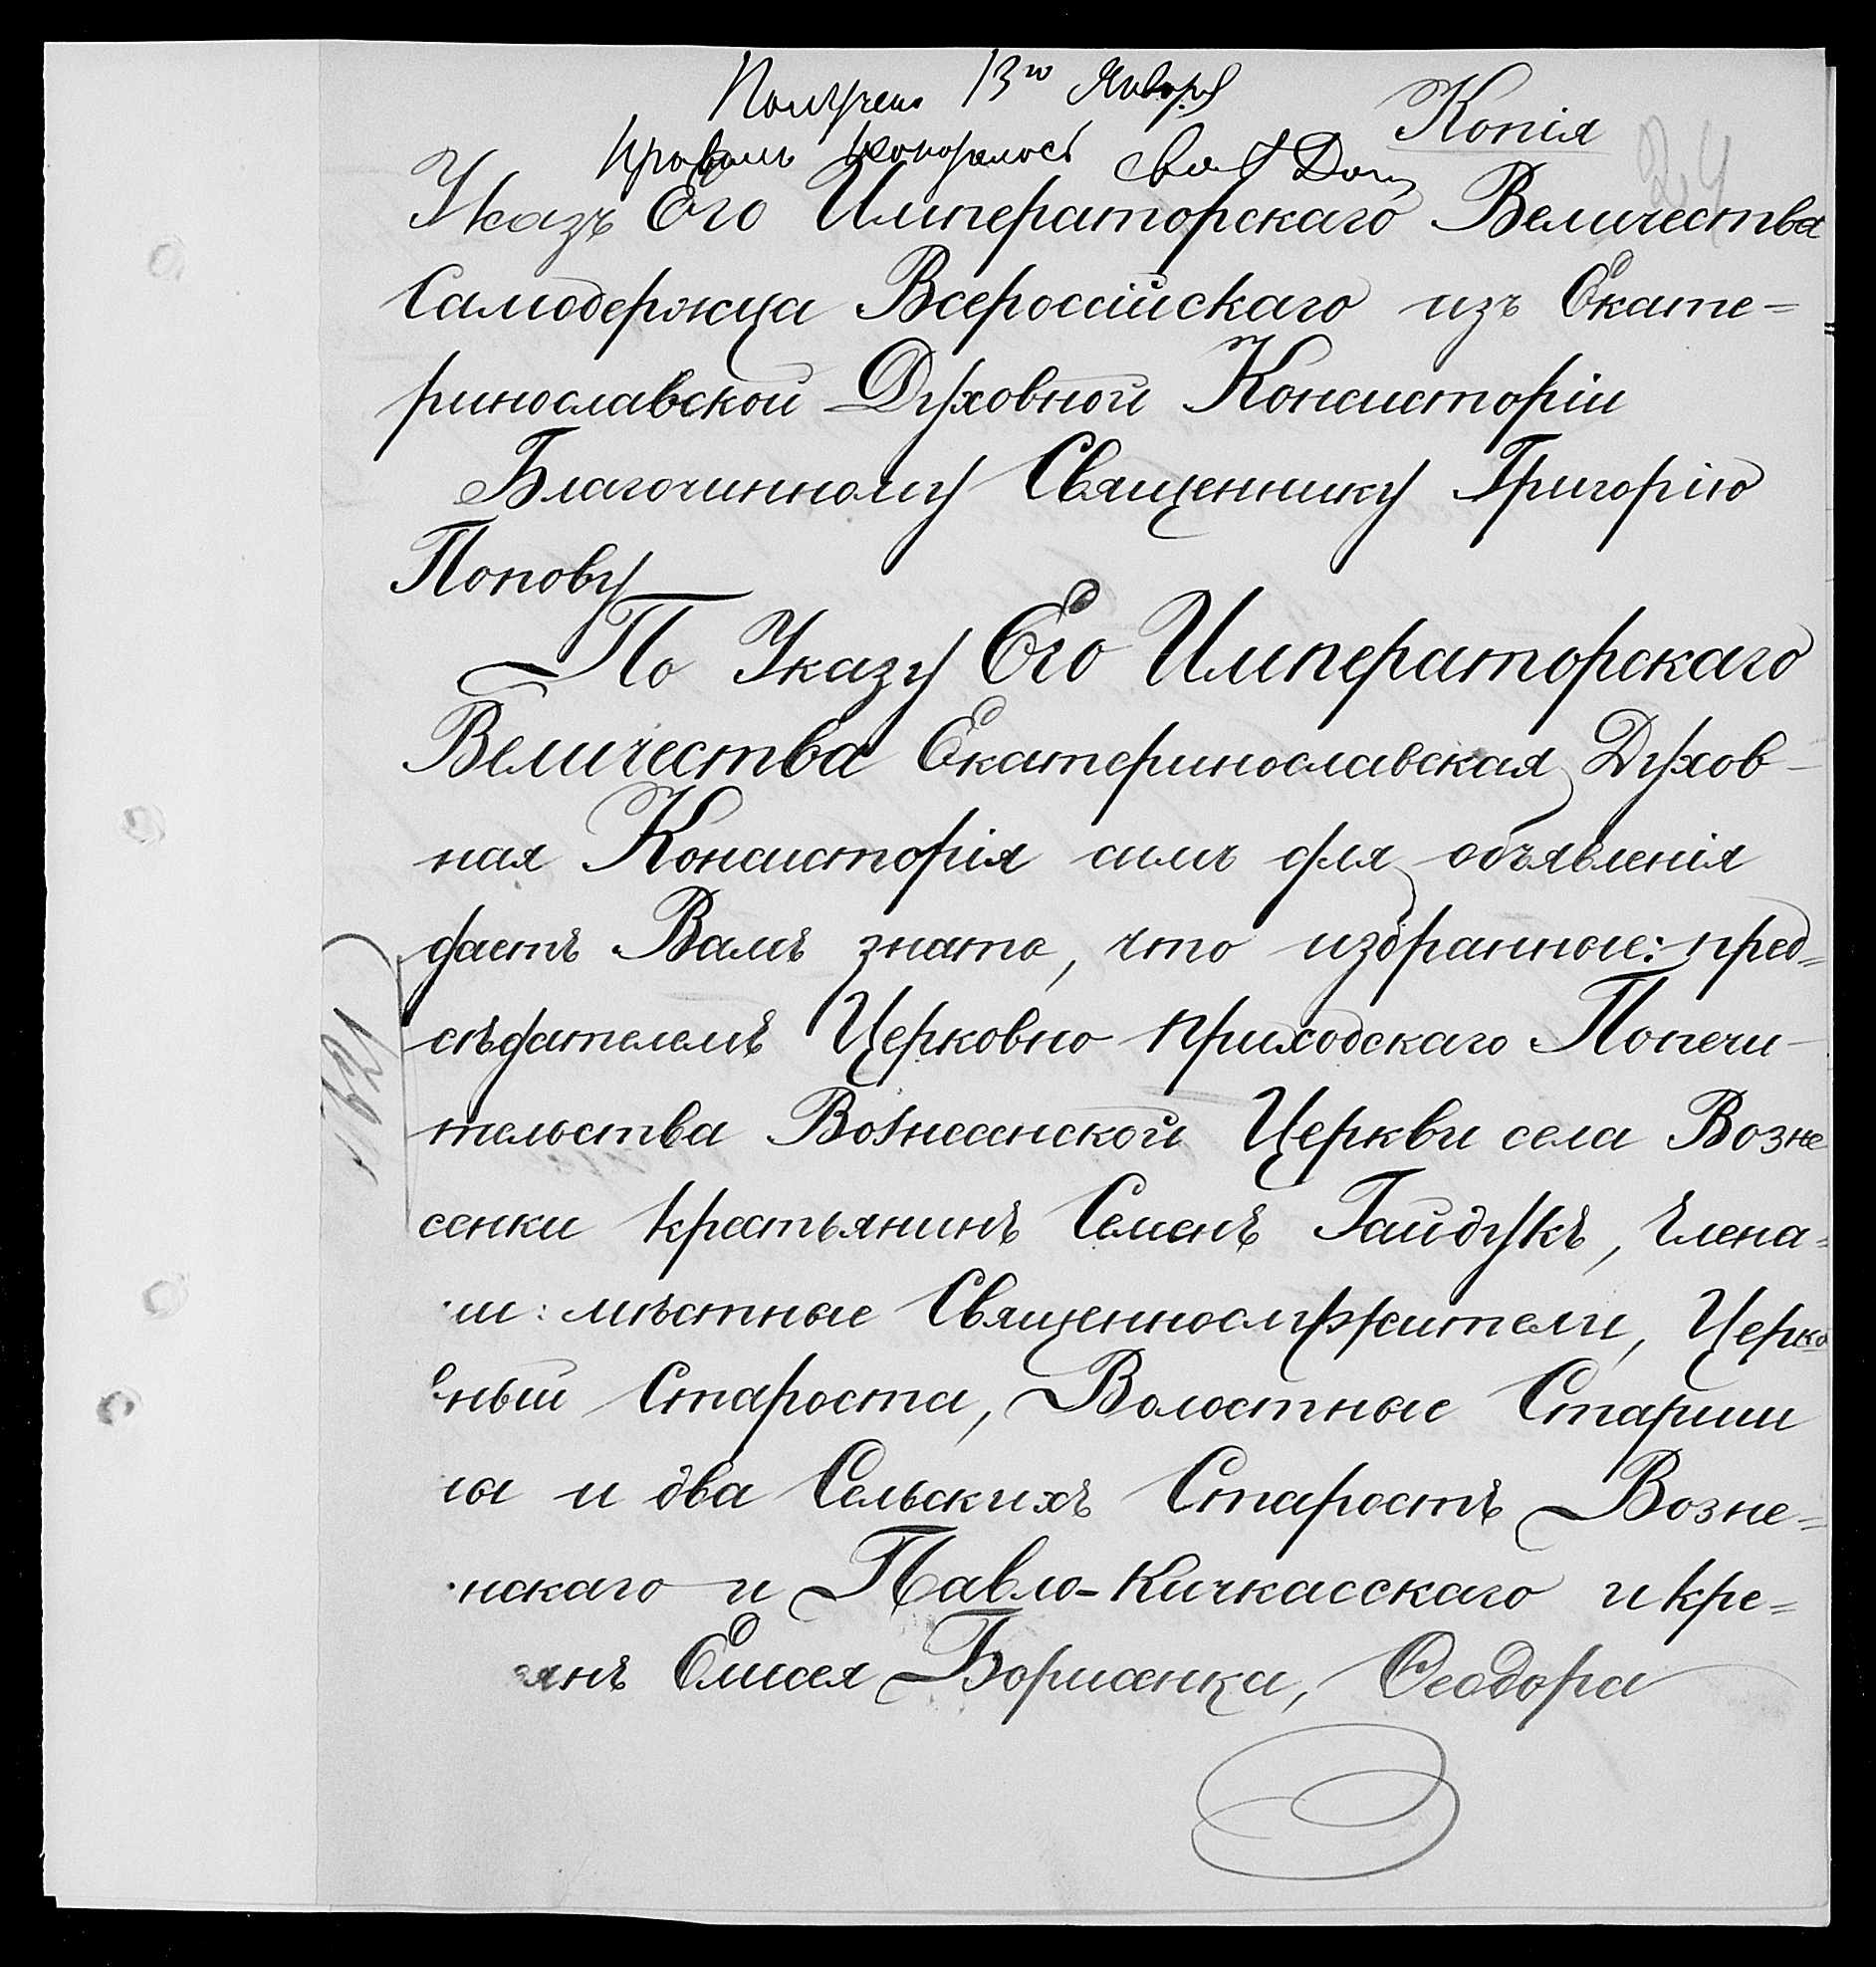 Получено 13го Января
Копія
24
Указъ Его Императорскаго Величества
Самодержца Всероссійскаго изъ Екате=
ринославской Духовной Консисторіи
Благочинному Священнику Григорію
Попову
По Указу Его Императорскаго
Величества Екатеринославская Духов-
ная Консисторія симъ для объявленія
даетъ Вамъ знать, что избранные: пред=
сѣдателемъ Церковно приходскаго Попечи-
тельства Вознесенской Церкви села Возне
сенки крестьянинъ Семенъ Гайдукъ, члена=
ми: мѣстные Священнослужители, Церко
вный Староста, Волостные Старши
ны и два Сельскихъ Старостъ Возне=
нскаго и Павло-Кичкасскаго и кре=
янъ Елисея Борисенка, Ѳеодора